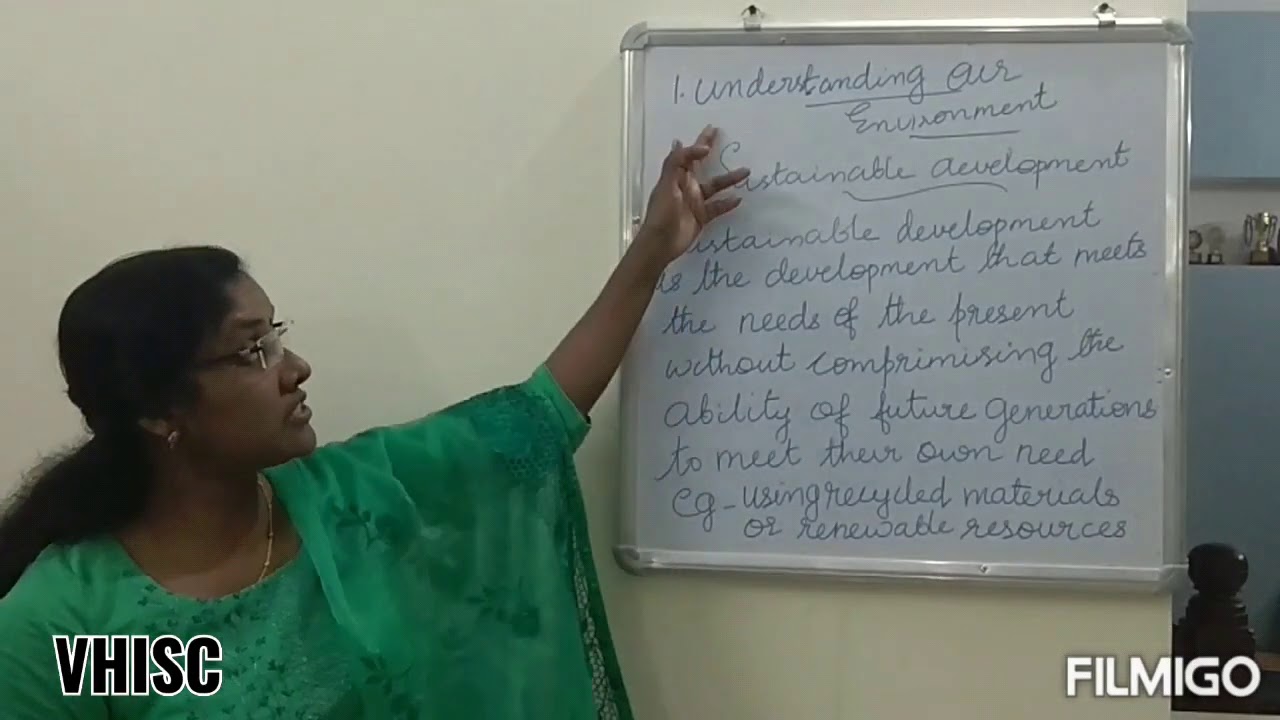 1. Understanding Our
Environment
Sustainable development
Sustainable development
is the development that meets
the needs of the present
without comprimising the
ability of future generations
to meet their own need
eg - using recycled materials
or renewable resources
VHISC
FILMIGO